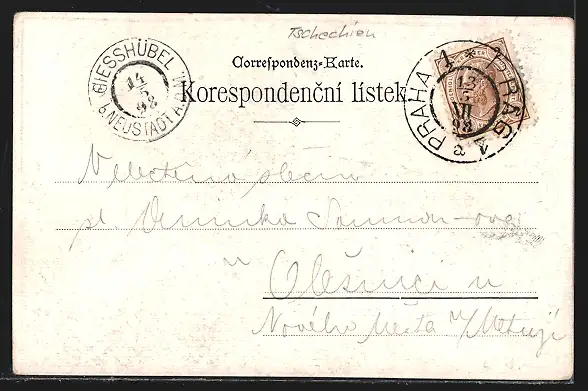 Tschechien
GIESSHÜBEL
14
98
b. NEUSTADT A.
Correspondenz-Karte.
Korespondenční lístek.
PRAHA 1 * PRAG
13
VI
98
Velectěná slečna
sl.
v
Olešnici u
Nového Města n/Metují